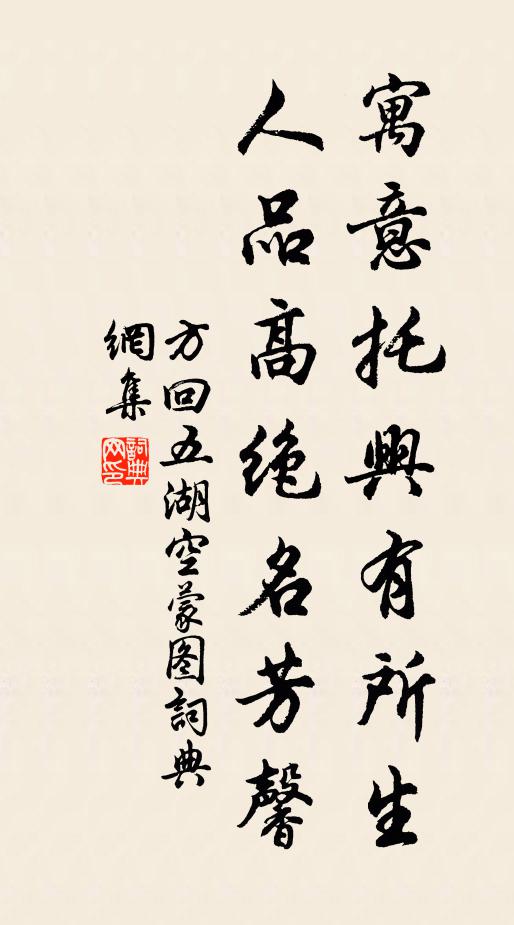 寓意托興有所生
人品高絶名芳馨
方回五湖空蒙图詞典
網集
詞典
网印